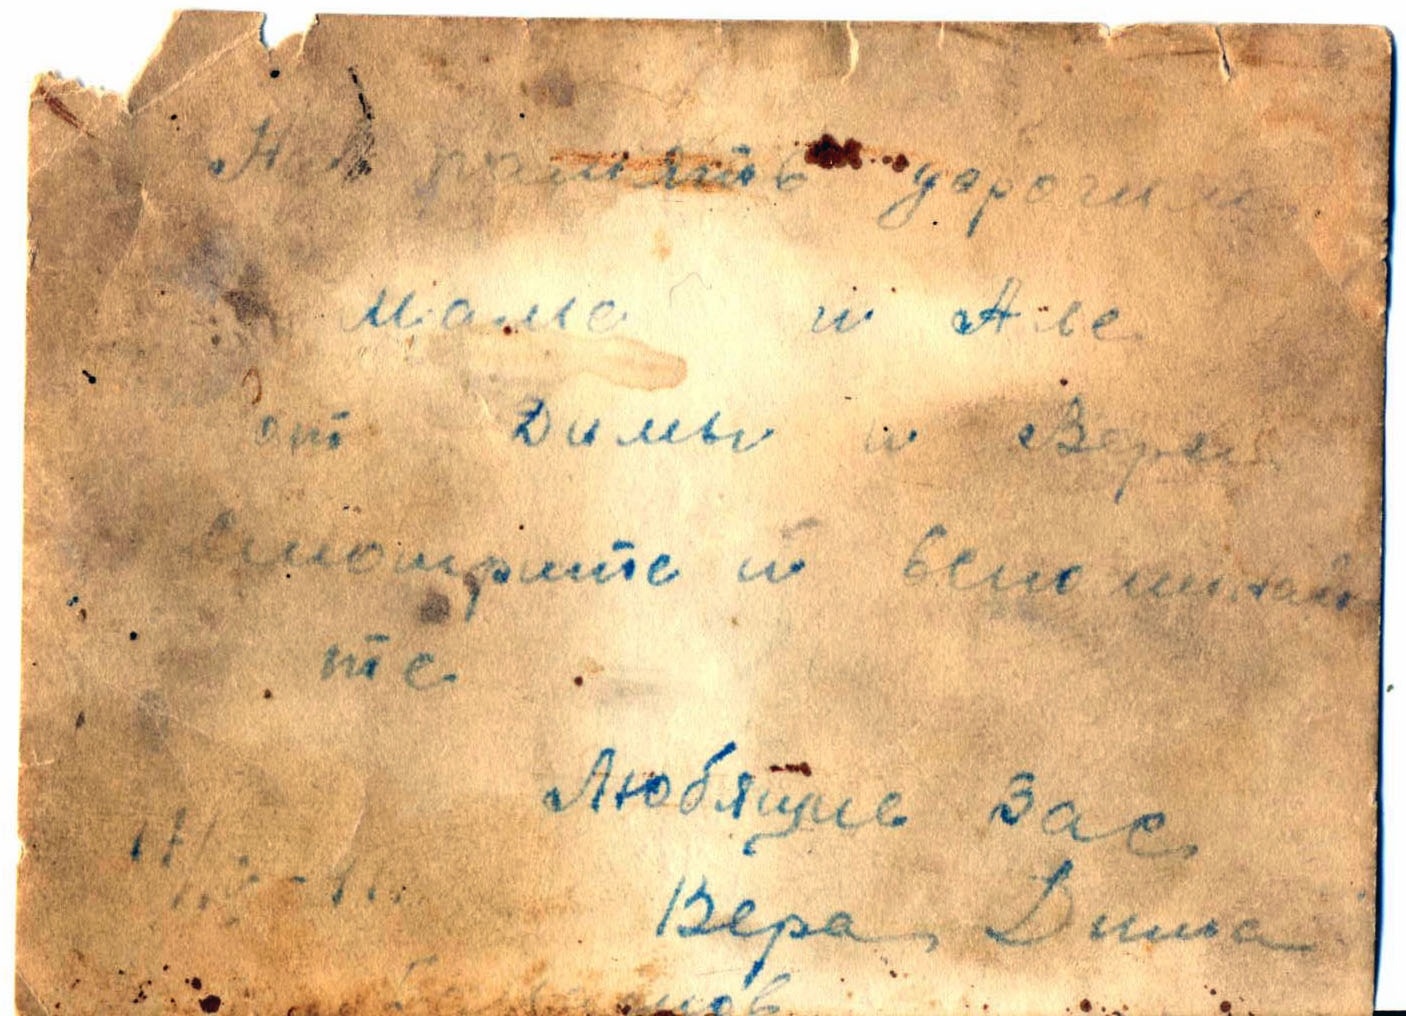 На память дорогим
маме и Але
от Димы и Веры
Смотрите и вспоминай
те.
Любящие Вас,
Вера, Дима